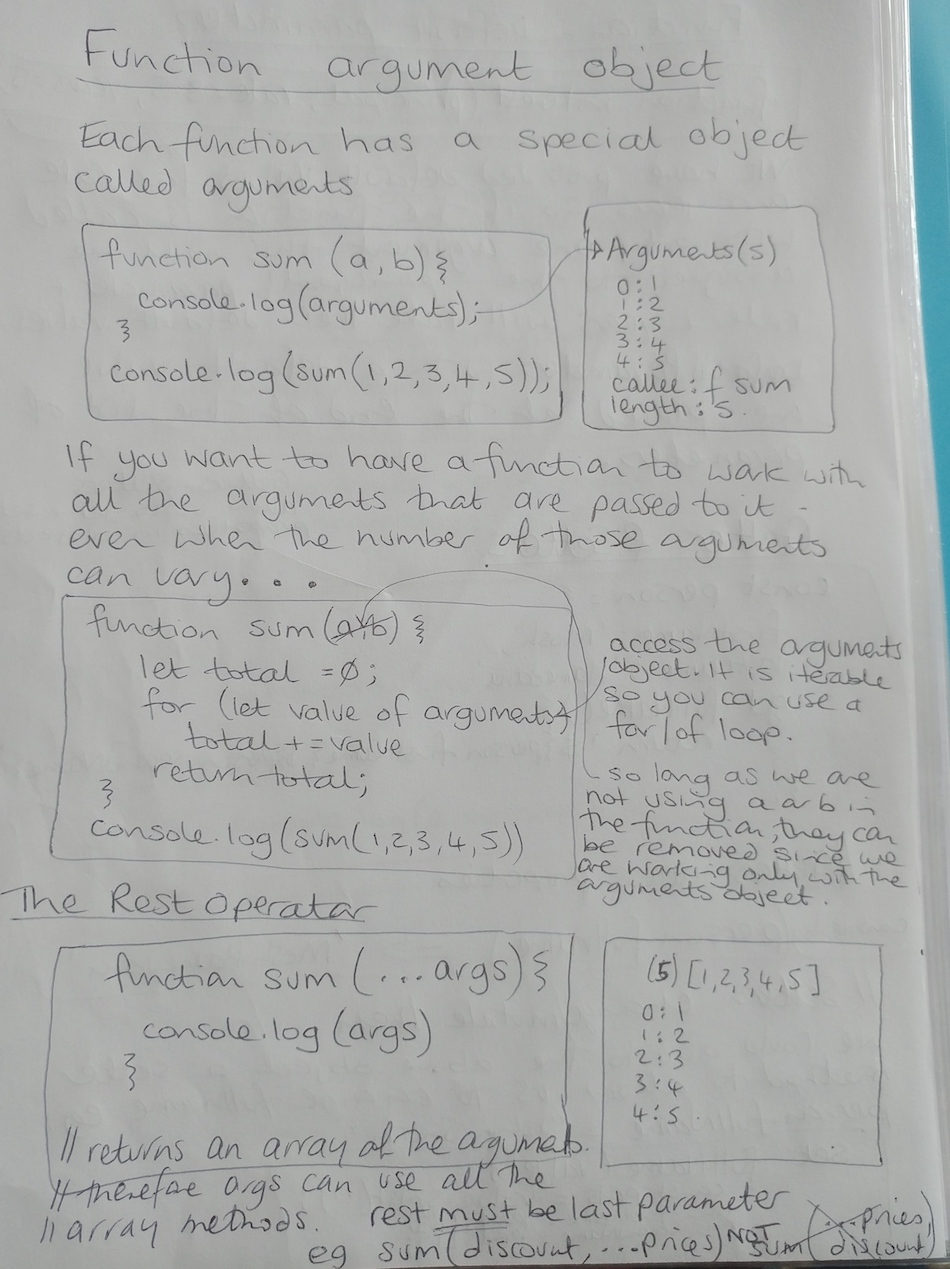 Function argument object
Each function has a special object
called arguments
function sum (a,b) {
console.log(arguments);
}
console.log(sum(1,2,3,4,5));
Arguments(5)
0:1
1:2
2:3
3:4
4:5
callee: f sum
length: 5.
If you want to have a function to work with
all the arguments that are passed to it -
even when the number of those arguments
can vary...
function sum (a,b) {
let total = 0;
for (let value of arguments)
total += value
return total;
}
console.log(sum(1,2,3,4,5))
access the arguments
object. It is iterable
so you can use a
for/of loop.
so long as we are
not using a or b in
the function, they can
be removed since we
are working only with the
arguments object.
The Rest Operator
function sum (...args) {
console.log (args)
}
(5) [1,2,3,4,5]
0:1
1:2
2:3
3:4
4:5
// returns an array of the argumets.
// therefore args can use all the
// array methods. rest must be last parameter
eg sum(discount, ...prices) NOT sum(...prices, discount)